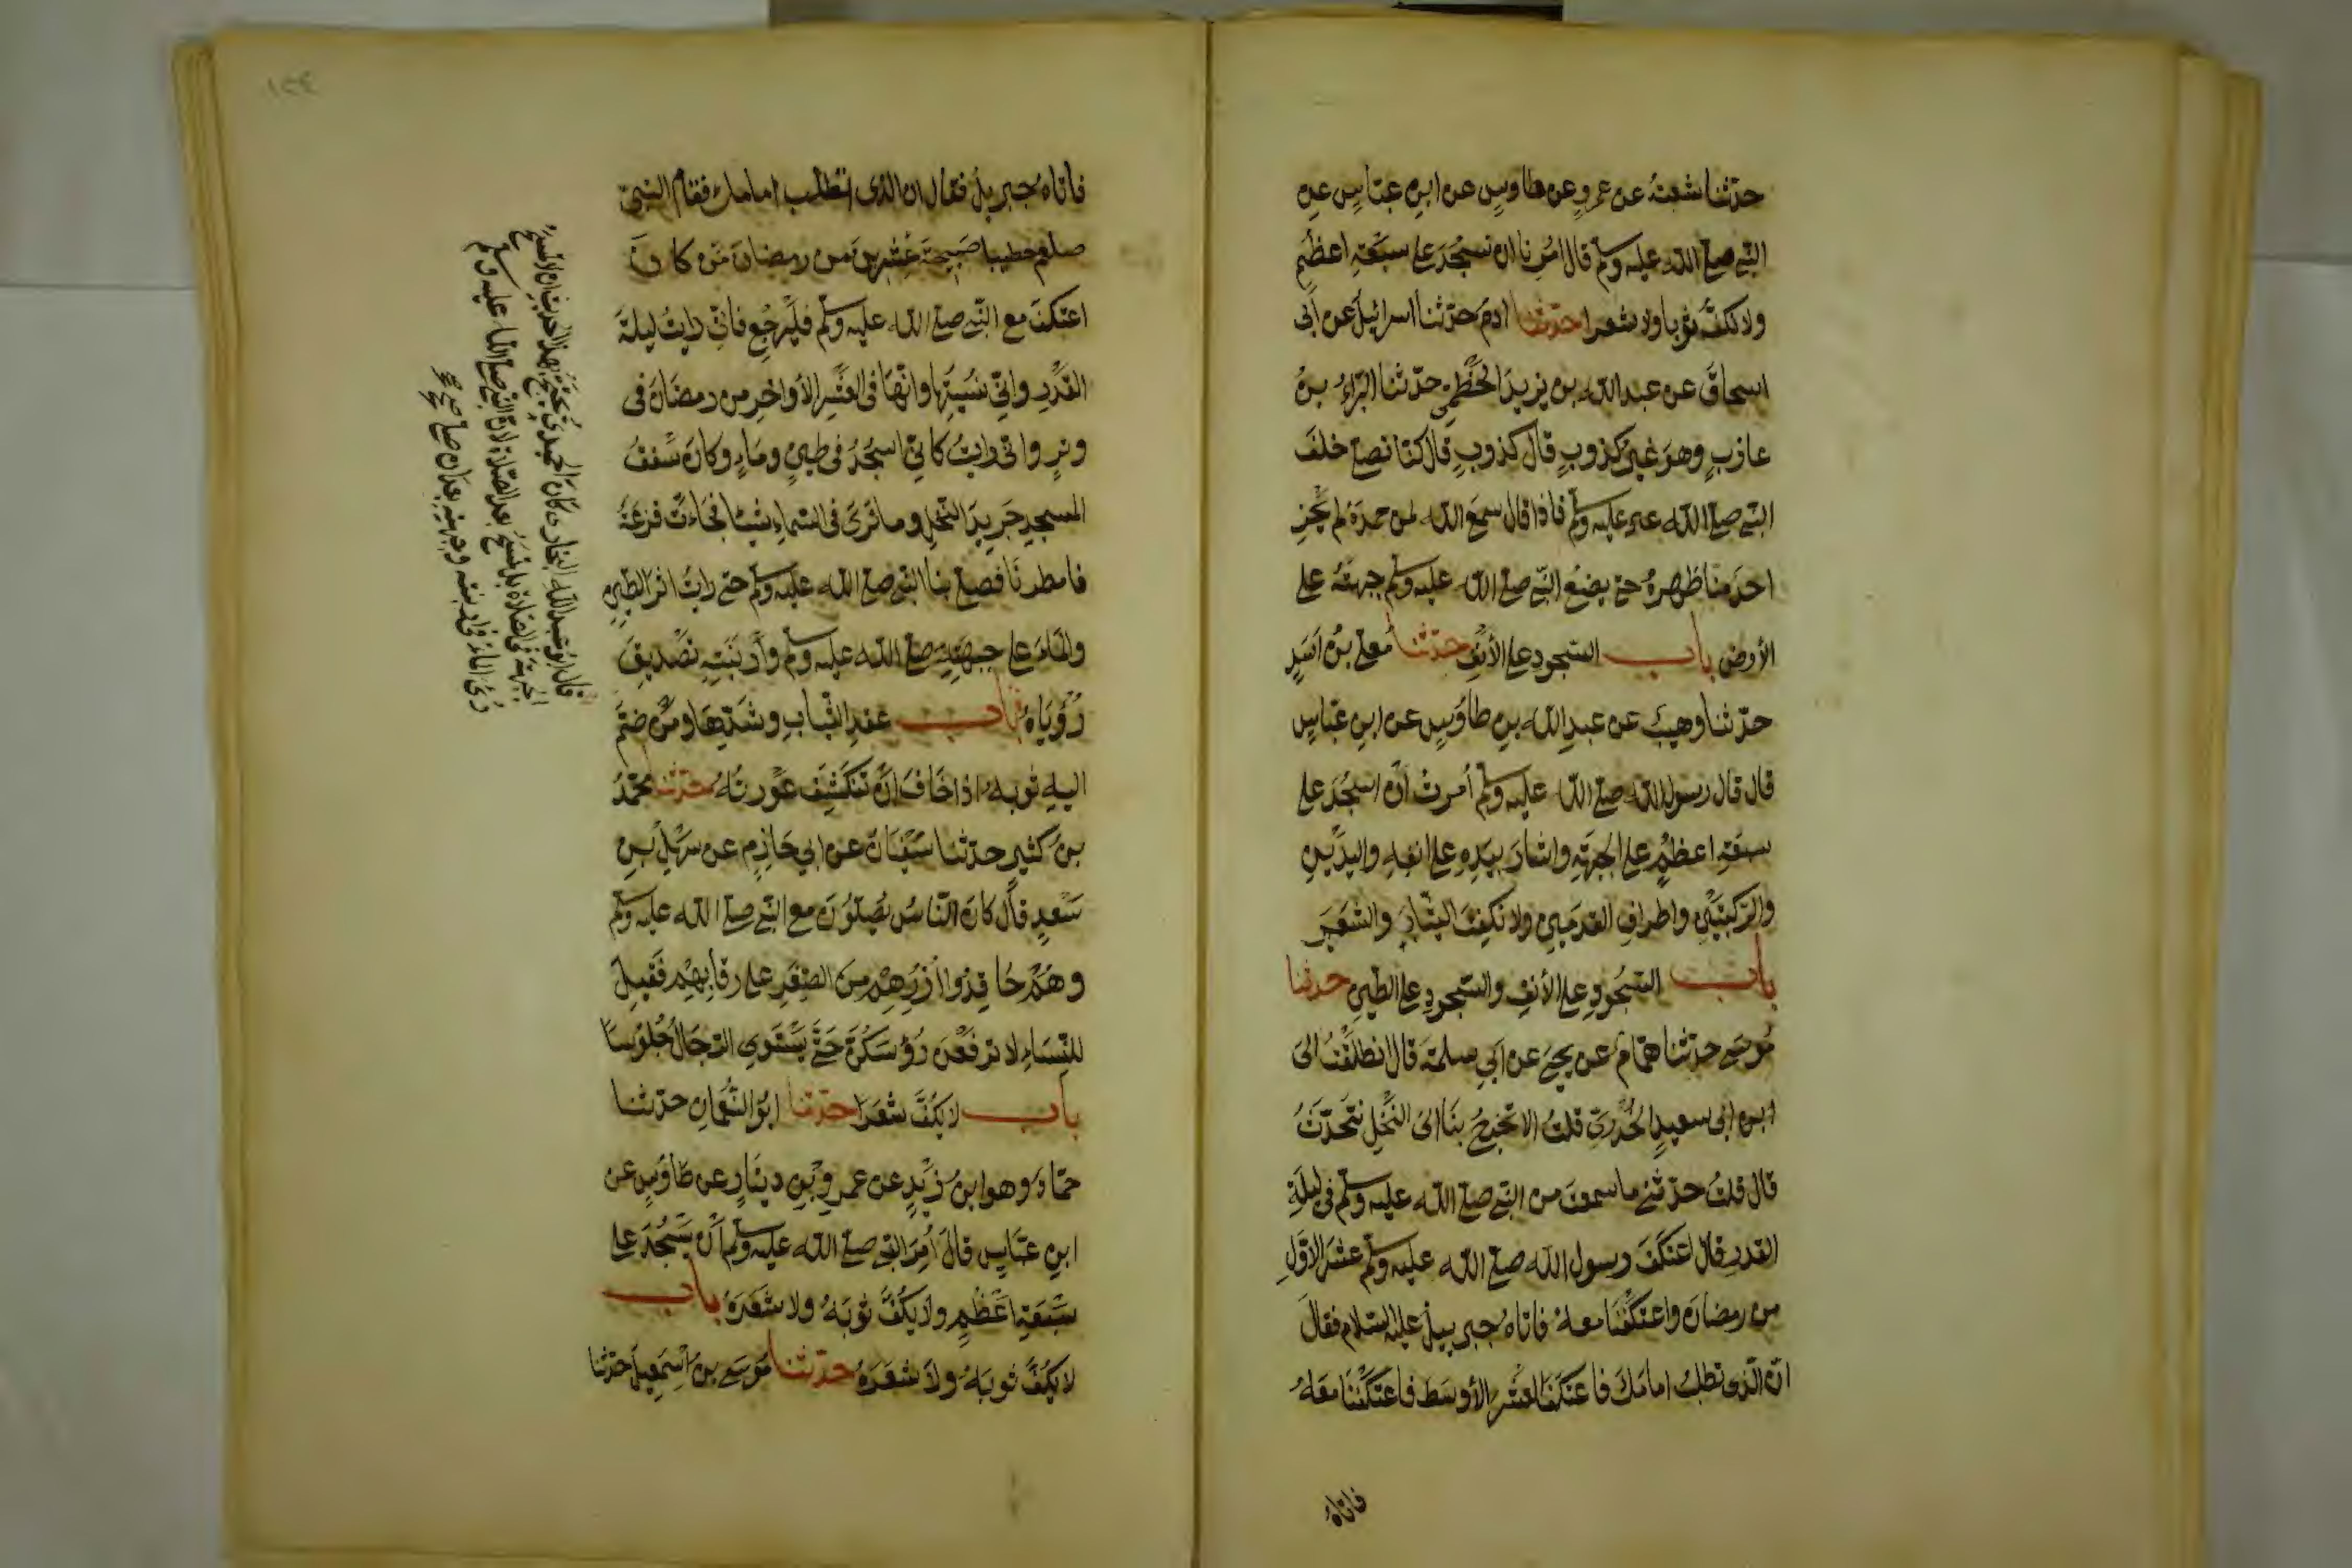 حدثنا شعبة عن عمرو عن طاوس عن ابن عباس عن
النبي صلى الله عليه وسلم قال امرنا ان نسجد على سبعة اعظم
ولا نكف ثوبا ولا شعرا حدثنا ادم حدثنا اسرائيل عن أبى
اسحاق عن عبد الله بن يزيد الخطمي حدثنا البراء بن
عازب وهو غير كذوب قال كذوب قال كنا نصلى خلف
النبي صلى الله عليه وسلم فاذا قال سمع الله لمن حمده لم يحن
احد منا ظهره حتى يضع النبي صلى الله عليه وسلم جبهته على
الأرض باب السجود على الأنف حدثنا معلى بن اسد
حدثنا وهيب عن عبد الله بن طاوس عن ابن عباس
قال قال رسول الله صلى الله عليه وسلم أمرت أن اسجد على
سبعة اعظم على الجبهة واشار بيده على انفه واليدين
والركبتين واطراف القدمين ولا نكفت الثياب والشعر
باب السجود على الأنف والسجود على الطين حدثنا
موسى حدثنا همام عن يحيى عن ابي سلمة قال انطلقت الى
ابن ابى سعيد الخدري فقلت الا تخرج بنا الى النخل نتحدث
قال قلت حدثني ما سمعت من النبي صلى الله عليه وسلم في ليلة
القدر قال اعتكف رسول الله صلى الله عليه وسلم عشر الاول
من رمضان واعتكفنا معه فاتاه جبرييل عليه السلام فقال
ان الذى تطلب امامك فاعتكف العشر الأوسط فاعتكفنا معه
فاتاه
١٣٤
فاتاه جبريل فقال ان الذى تطلب امامك فقام النبي
صلعم خطيبا صبيحة عشرين من رمضان من كان
اعتكف مع النبي صلى الله عليه وسلم فليرجع فانى رايت ليلة
القدر وانى نسيتها وانها فى العشر الأواخر من رمضان فى
وتر وانى رايت كانى اسجد فى طين وماء وكان سقف
المسجد جريد النخل وما نرى فى السماء شيئا فجاءت قزعة
فامطرنا فصلى بنا النبي صلى الله عليه وسلم حتى رايت اثر الطين
والماء على جبهة صلى الله عليه وسلم وأرنبته تصديق
رؤياه باب عقد الثياب وشدها ومن ضم
اليه ثوبه اذا خاف أن تنكشف عورته حدثنا محمد
بن كثير حدثنا سفيان عن ابي حازم عن سهل بن
سعد قال كان الناس يصلون مع النبي صلى الله عليه وسلم
وهم عاقدوا أزرهم من الصغر على رقابهم فقيل
للنساء لا ترفعن رؤسكن حتى يستوى الرجال جلوسا
باب لا يكف شعرا حدثنا ابو النعمان حدثنا
حماد وهو ابن زيد عن عمرو بن دينار عن طاوس عن
ابن عباس قال أمر النبي صلى الله عليه وسلم أن يسجد على
سبعة اعظم ولا يكف ثوبه ولا شعره باب
لا يكف ثوبه ولا شعره حدثنا موسى بن اسمعيل حدثنا
قال ابو عبد الله البخارى كان الحميدى يحتج بهذا الحديث ان لا يمسح
الجبهة فى الصلاة بل يمسح بعد الصلاة لان النبي صلى الله عليه وسلم
رئى الماء فى ارنبته وجبهته بعد ان صلى صح